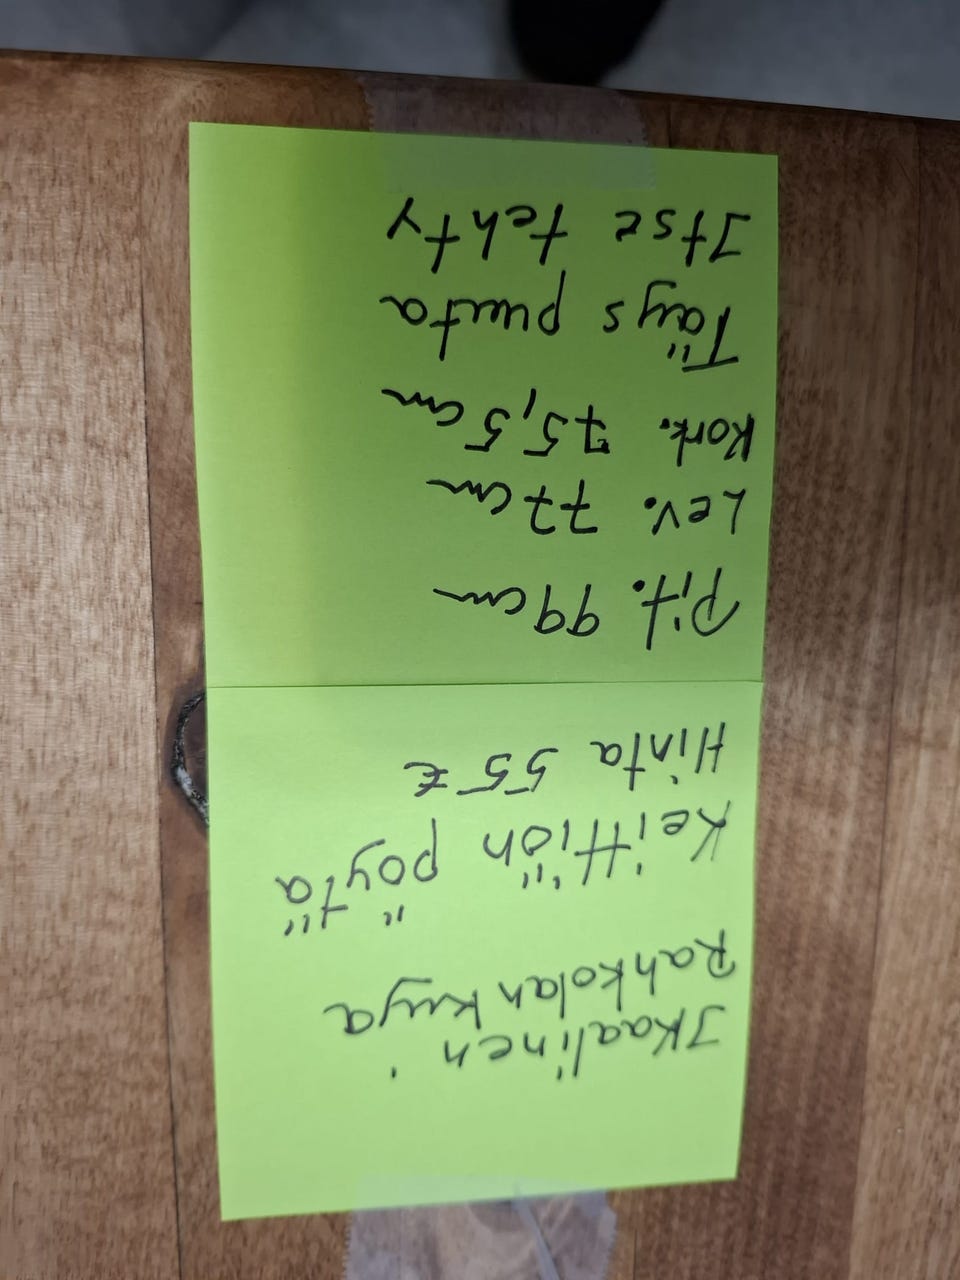 Ikaalinen
Rahkolan kuja
Keittiön pöytä
Hinta 55 €
Pit. 99 cm
Lev. 77 cm
Kork. 75,5 cm
Täys puuta
Itse tehty